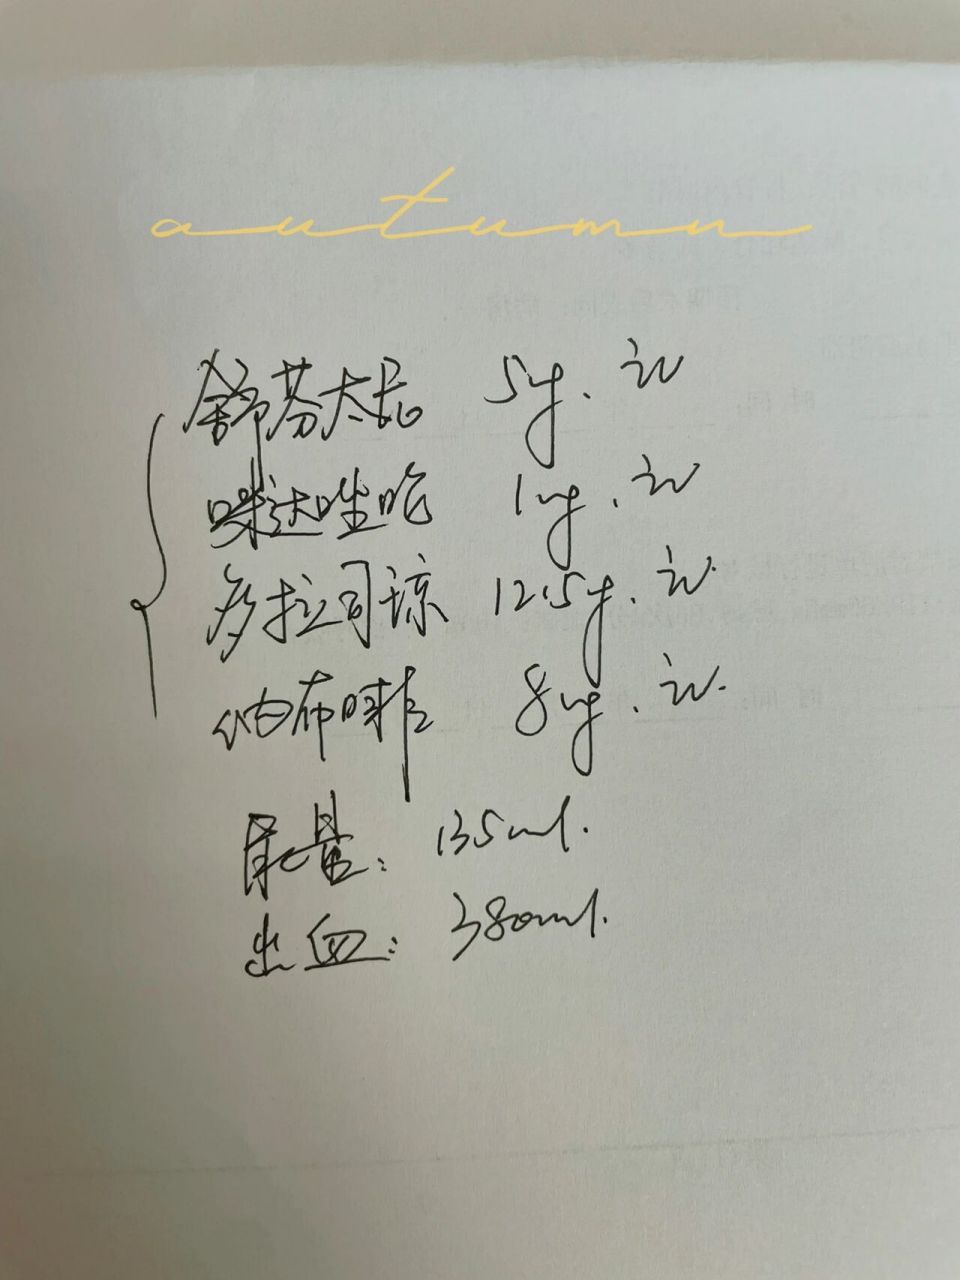 autumn
舒芬太尼 5ug. iv
咪达唑吃 1mg. iv
多拉司琼 12.5mg. iv.
帕布昔 8mg. iv.
尿量: 135ml.
出血: 380ml.